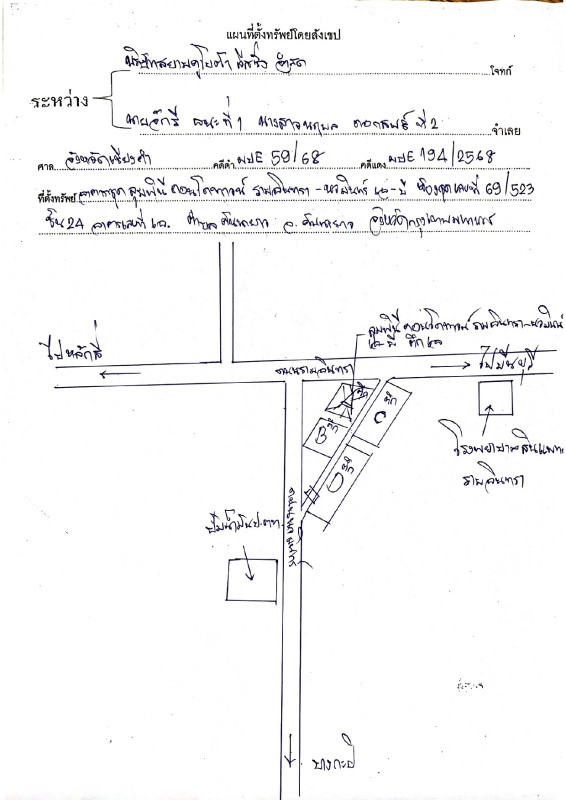 แผนที่ตั้งทรัพย์โดยสังเขป
บริษัทสยามคูโบต้า ลีสซิ่ง จำกัด โจทก์
ระหว่าง
นายจักรี ที่ 1 นางสาวนฤมล ที่ 2 จำเลย
ศาล จังหวัดเชียงคำ คดีดำ ผบE 59/68 คดีแดง ผบE 194/2568
ที่ตั้งทรัพย์ อาคารชุด ลุมพินี คอนโดทาวน์ รามอินทรา - นวมินทร์ เอ-บี ห้องชุดเลขที่ 69/523
ชั้น 24 อาคารเลขที่ เอ. ตำบล คันนายาว อ. คันนายาว จังหวัดกรุงเทพมหานคร
ลุมพินี คอนโดทาวน์ รามอินทรา-นวมินทร์
เอ บี ตึก เอ
ไปหลักสี่
ถนนรามอินทรา
ไปมีนบุรี
ตึก A
ตึก B
ตึก C
ตึก D
โรงพยาบาลสินแพทย์
รามอินทรา
ถนนนวมินทร์
ปั๊มน้ำมันปตท.
บางกะปิ